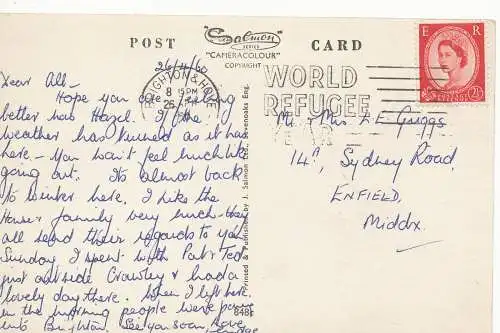 POST CARD
"Salmon
SERIES
"CAMERACOLOUR"
COPYRIGHT
26/4/60
Dear All -
Hope you are feeling
better has Hazel. If the
weather has turned as it has
here - You won't feel much like
going out. Its almost back
to winter here. I like the
House & family very much - they
all send their regards to you.
Sunday I spent with Pat & Ted
just outside Crawley & had a
lovely day there. When I left here
in the morning people were
into Brighton. See you soon, Love
BRIGHTON & HOVE
8 15 PM
26
WORLD
REFUGEE
YEAR
E R
2½
Mr & Mrs F E Guggs
14A, Sydney Road,
ENFIELD,
Middx.
Printed & Published by J. Salmon Ltd., Sevenoaks Eng.
848F